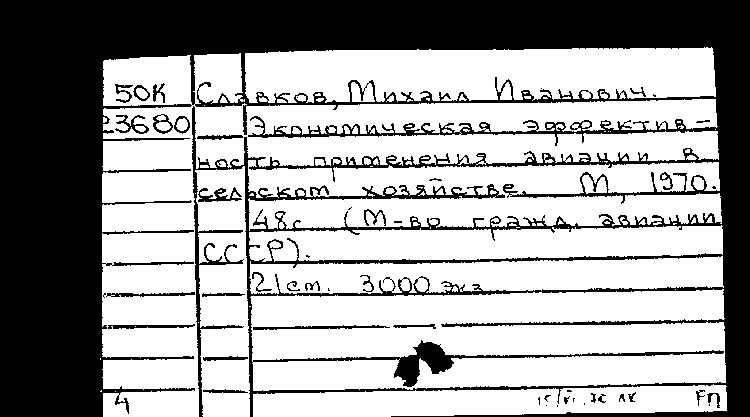 50К Славков, Михаил Иванович.
23680 Экономическая эффектив-
ность применения авиации в
сельском хозяйстве. М, 1970.
48с (М-во гражд. авиации
СССР).
21 см. 3000 экз
4 FП